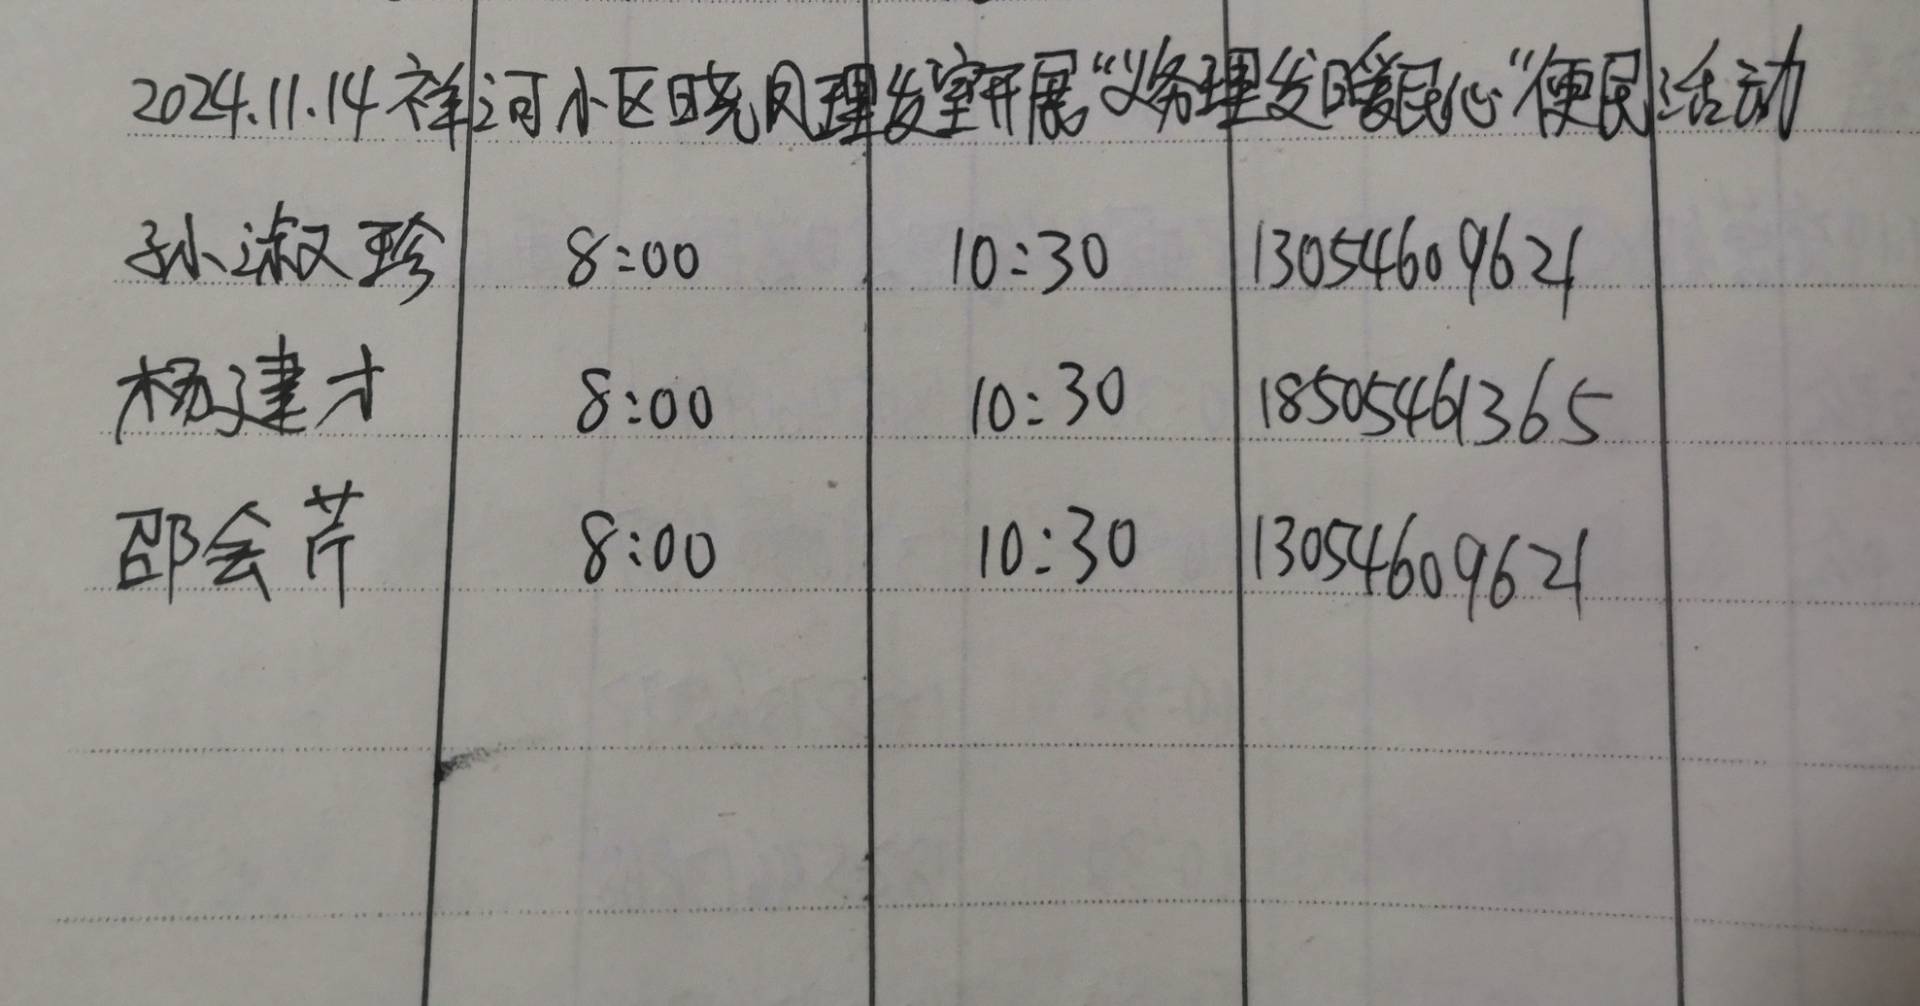 2024.11.14祥河小区晓凤理发室开展“义务理发暖民心”便民活动
孙淑珍 8:00 10:30 13054609621
杨建才 8:00 10:30 18505461365
邵会芹 8:00 10:30 13054609621